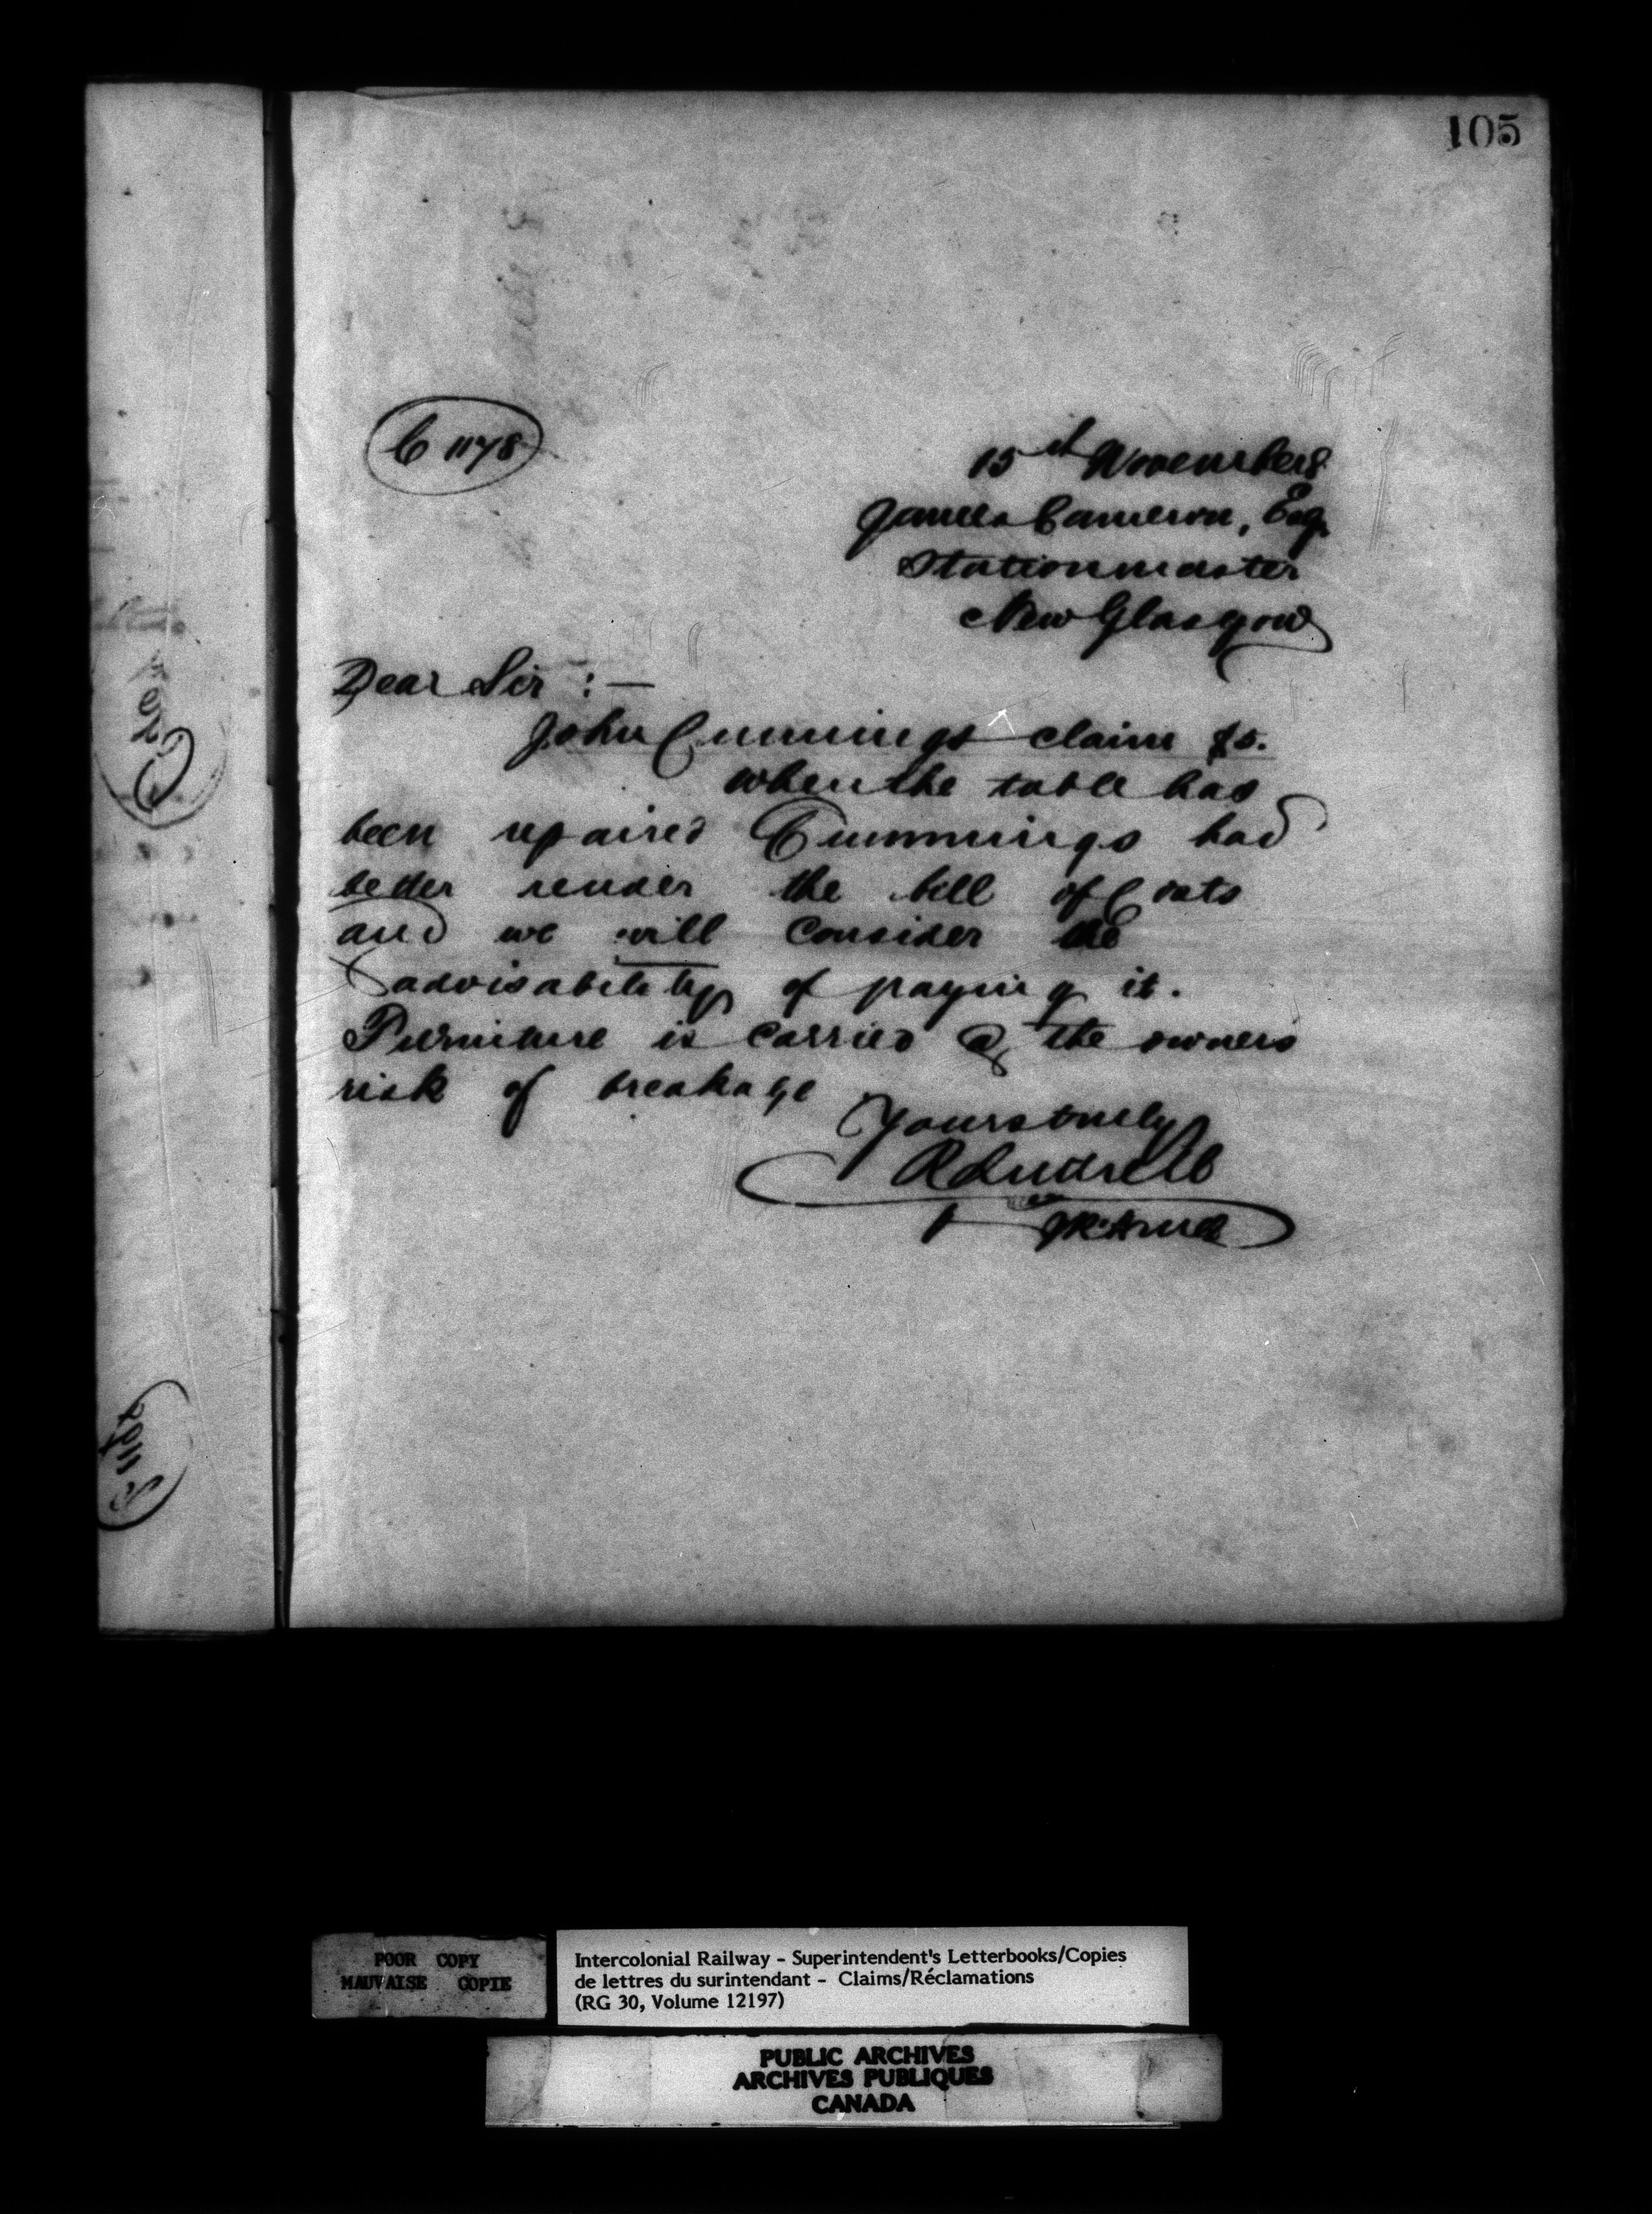 105
C 1178
15th November 8
James Cameron, Esq
Stationmaster
New Glasgow
Dear Sir : —
John Cummings claim $5.
When the table has
been repaired Cummings had
better render the bill of Costs
and we will consider the
advisability of paying it.
Furniture is carried @ the owners
risk of breakage
Yours truly
POOR COPY
MAUVAISE COPIE
Intercolonial Railway - Superintendent's Letterbooks/Copies
de lettres du surintendant - Claims/Réclamations
(RG 30, Volume 12197)
PUBLIC ARCHIVES
ARCHIVES PUBLIQUES
CANADA